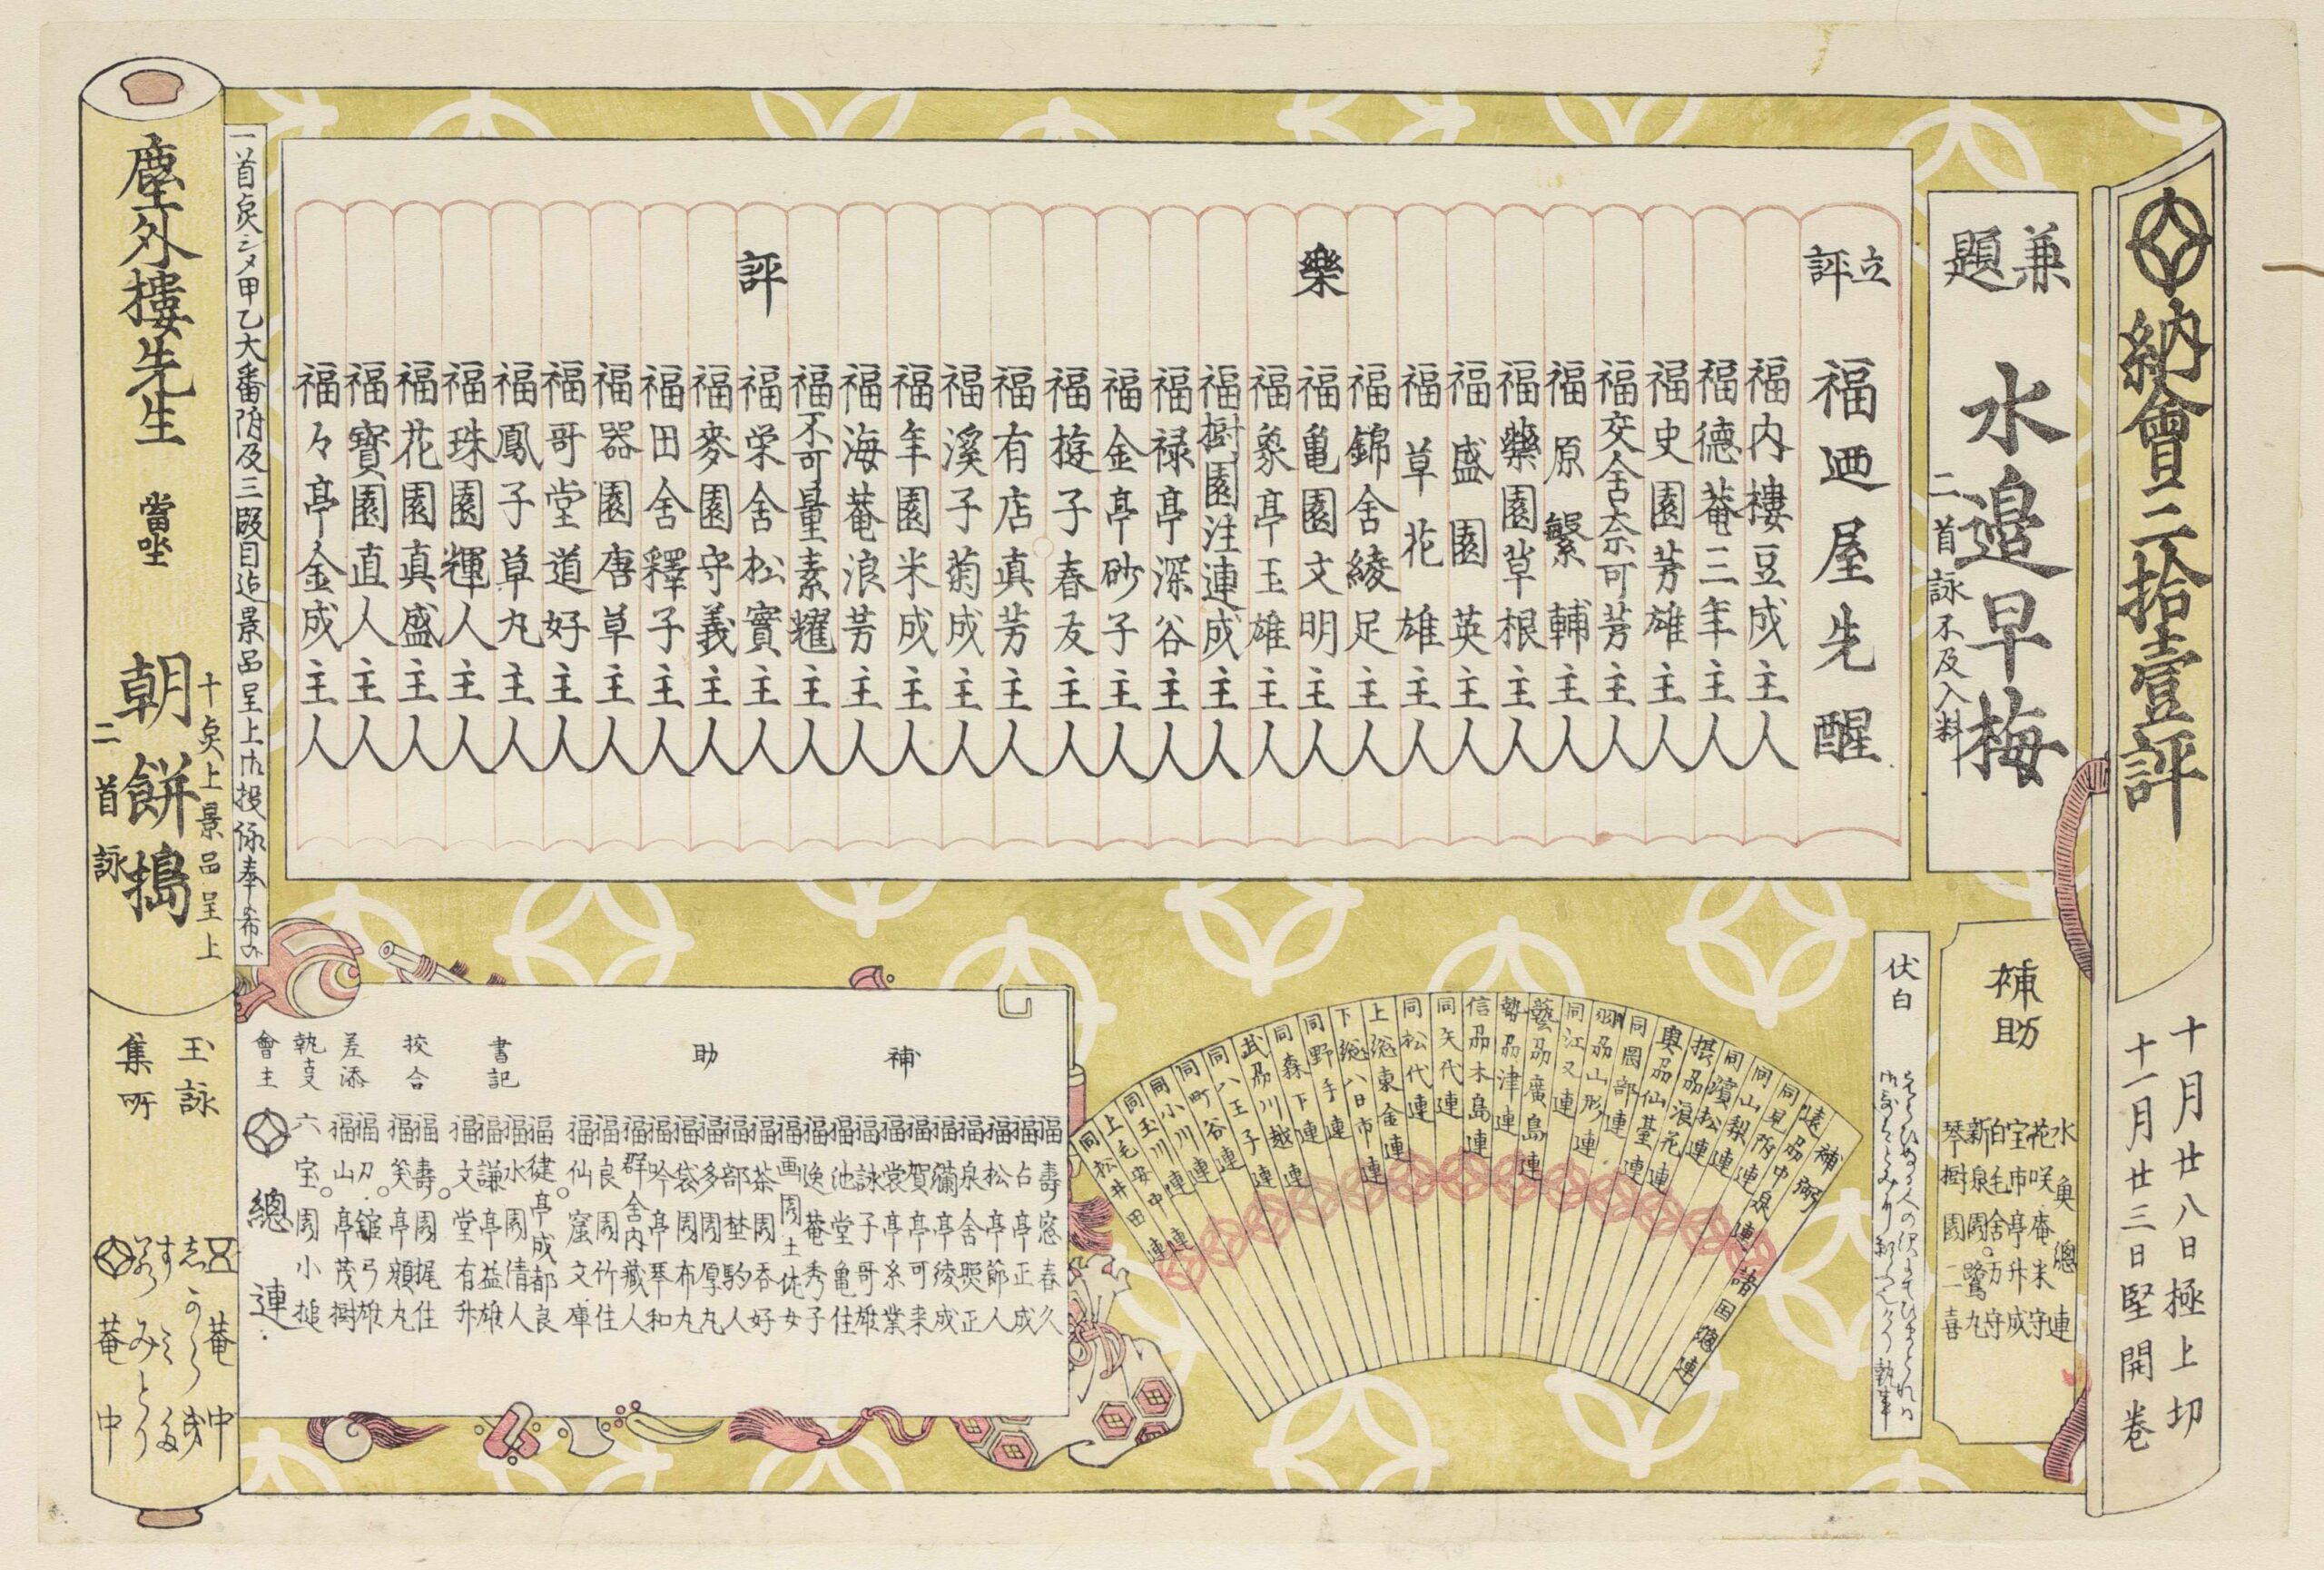 納會三拾壹評
十月廿八日極上切
十一月廿三日堅開巻
兼題
水邉早梅
二首詠不及入料
補助
水魚總連
花咲庵米守
宝市亭升成
白毛舎万守
新泉園鷺丸
琴樹園二喜
伏白
立評
福廼屋先醒
樂評
福内樓豆成主人
福德菴三年主人
福史園芳雄主人
福交舎奈可芳主人
福原繁輔主人
福藥園草根主人
福盛園英主人
福草花雄主人
福錦舎綾足主人
福亀園文明主人
福象亭玉雄主人
福樹園注連成主人
福禄亭深谷主人
福金亭砂子主人
福遊子春友主人
福有店真芳主人
福溪子菊成主人
福年園米成主人
福海菴浪芳主人
福不可量素耀主人
福栄舎松寶主人
福麥園守義主人
福田舎釋子主人
福器園唐草主人
福哥堂道好主人
福鳳子草丸主人
福珠園輝人主人
福花園真盛主人
福寶園直人主人
福々亭金成主人
補弼
遠刕中泉連
同見附連
同山梨連
同濱松連
摂刕浪花連
奥刕仙臺連
同岡部連
羽刕山形連
同江又連
藝刕廣島連
勢刕津連
信刕木島連
同矢代連
同松代連
上総東金連
下総八日市連
同野手連
同森下連
武刕川越連
同八王子連
同町谷連
同小川連
同玉川連
上毛安中連
同松井田連
諸国總連
補助
福壽窓春久
福占亭正成
福松亭節人
福泉舎照正
福彌亭綾成
福賀亭可来
福裳亭糸業
福詠子哥雄
福池堂亀住
福逸菴秀子
福画園土佐女
福茶園呑好
福部埜駒人
福多園厚丸
福袋園布丸
福吟亭琴和
福群舎内藏人
福良園竹住
福仙窟文庫
書記
福健亭成都良
福水園情人
福謙亭益雄
福文堂有升
挍合
福壽園梶住
福笑亭頬丸
差添
福刀舘弓雄
福山亭茂樹
執支
六宝園小槌
會主
總連
一首点シメ甲乙大番附及三齣目迠景品呈上
塵外樓先生
當坐
朝餅搗
十点上景品呈上
二首詠
玉詠集所
菴中
菴中